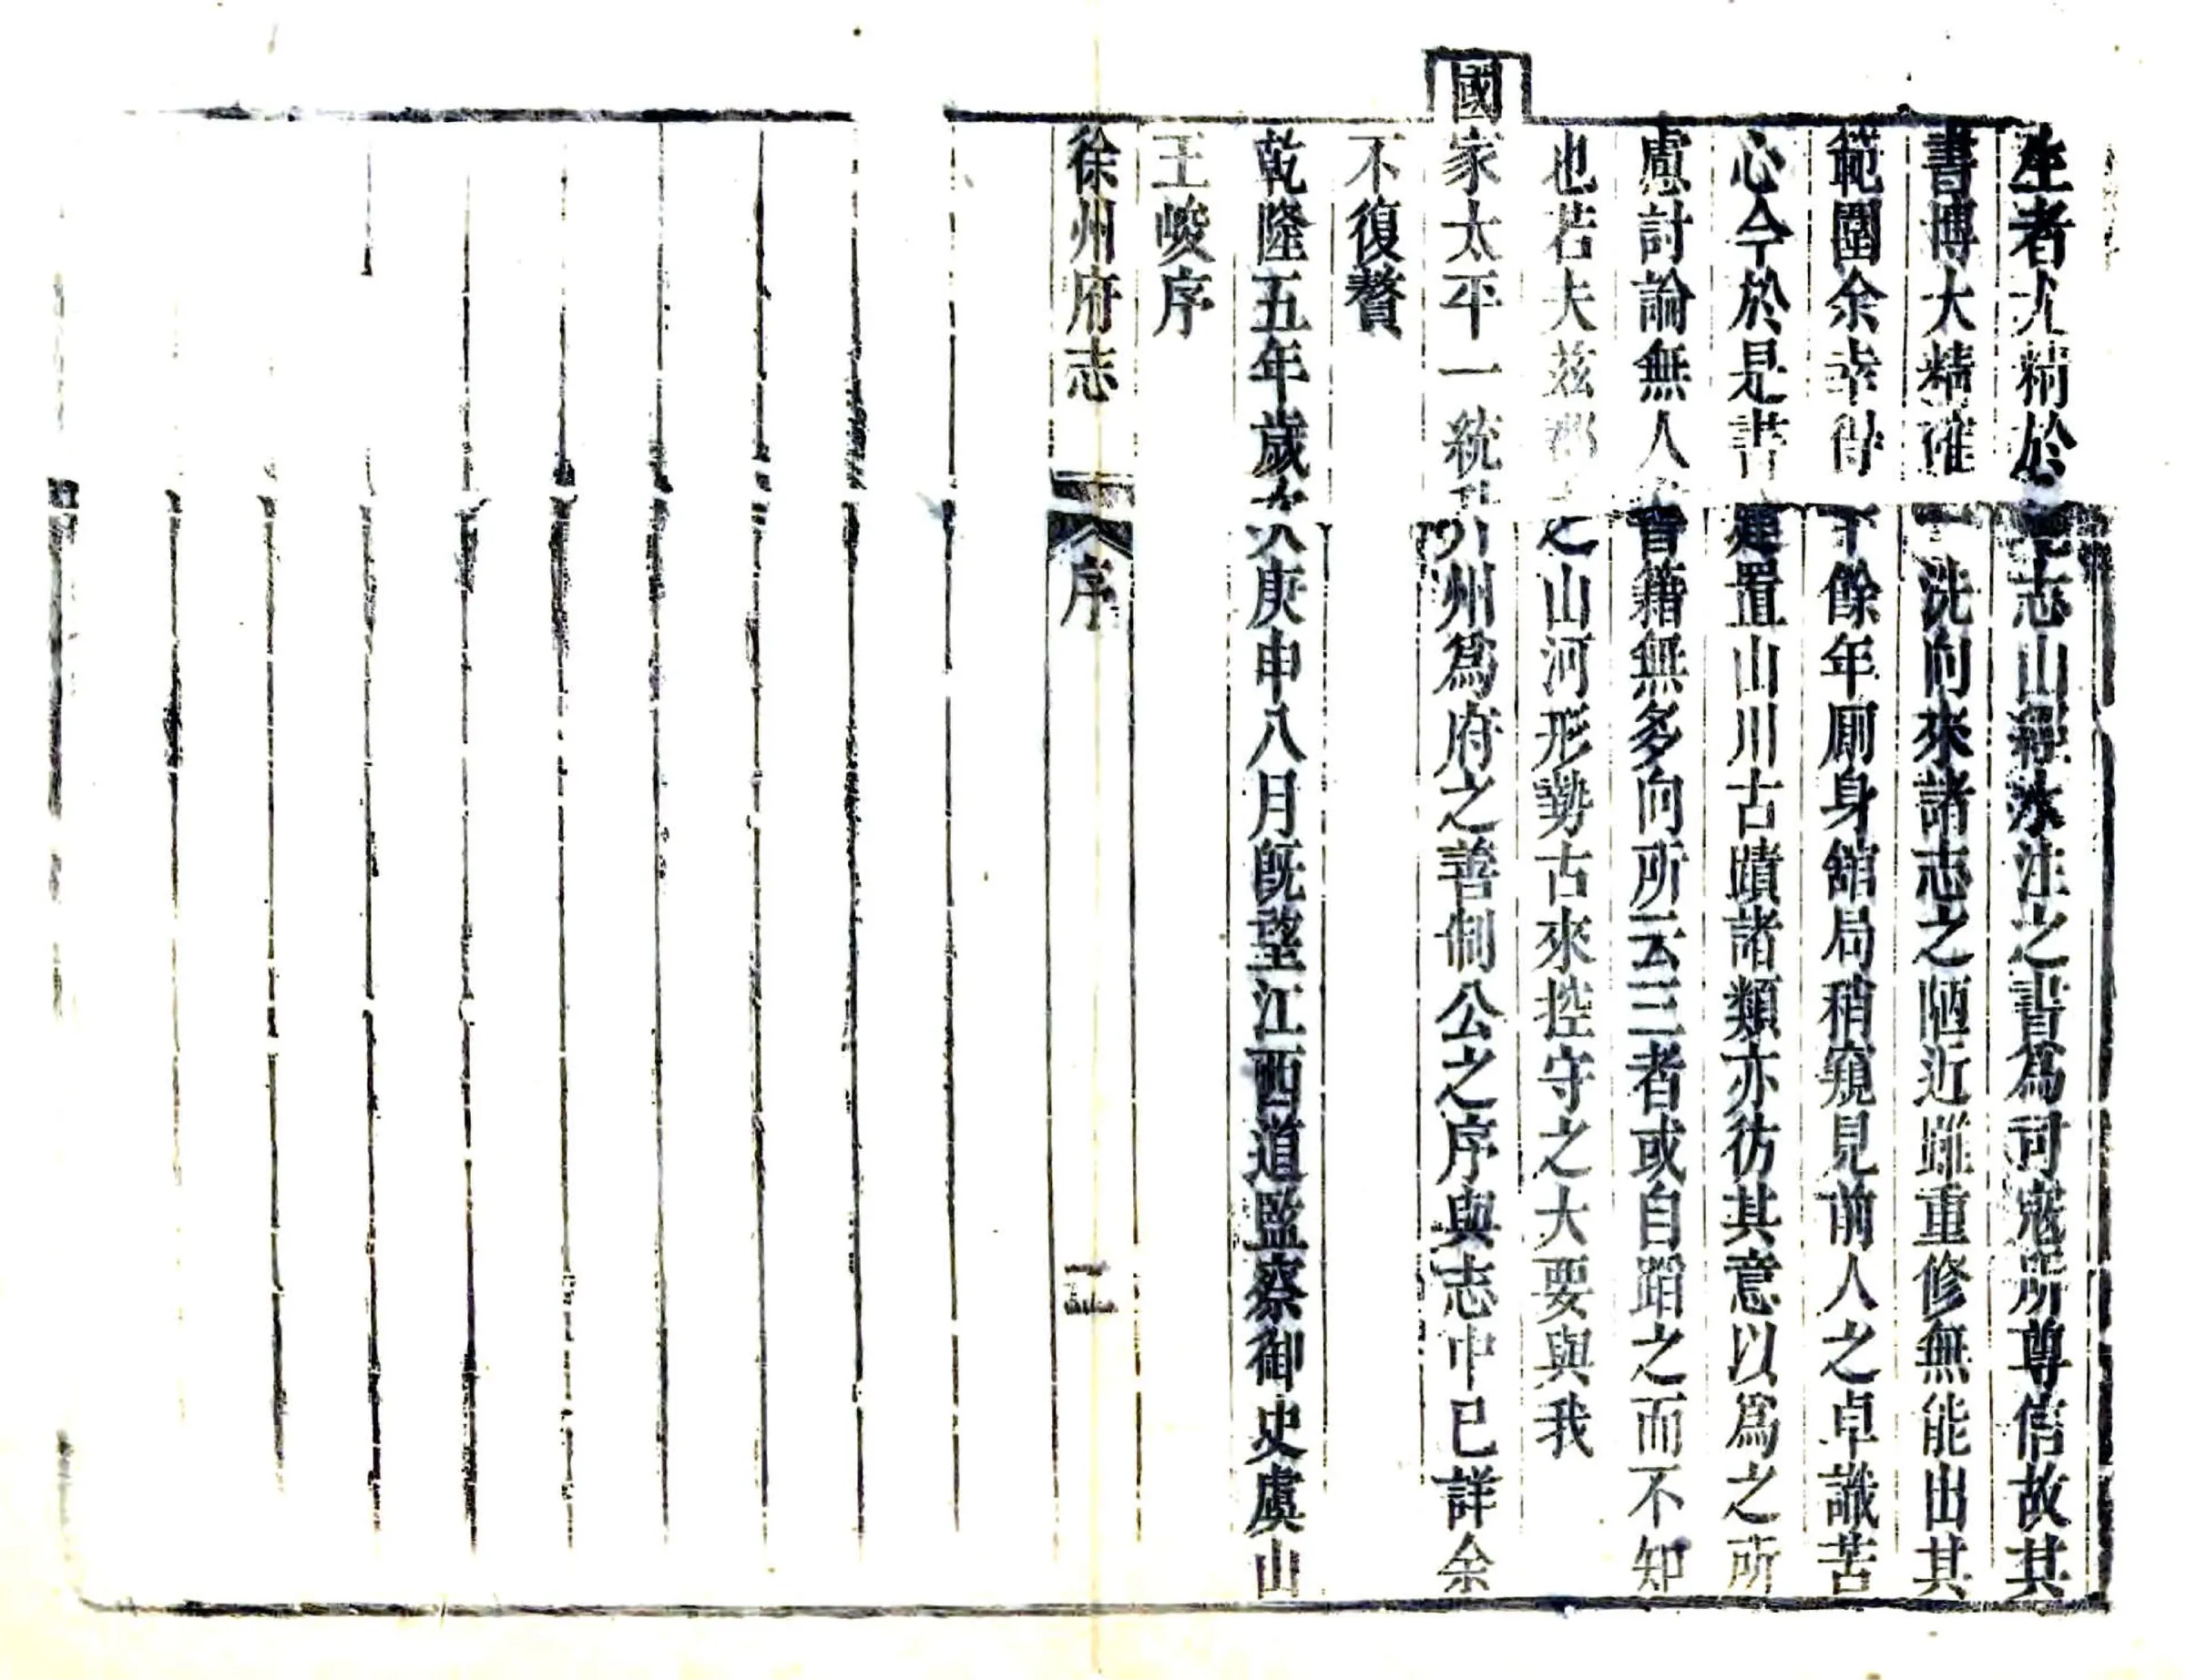 生者尤精於地志山經水注之書爲司寇所尊信故其
書博大精確一洗向來諸志之陋近雖重修無能出其
範圍余幸得十餘年厠身舘局稍窺見前人之卓識苦
心今於是書建置山川古蹟諸類亦彷其意以爲之所
慮討論無人書籍無多向所云三者或自蹈之而不知
也若夫茲郡之山河形勢古來控守之大要與我
國家太平一統升州爲府之善制公之序與志中已詳余
不復贅
乾隆五年歲次庚申八月旣望江西道監察御史虞山
王峻序
徐州府志 序 二